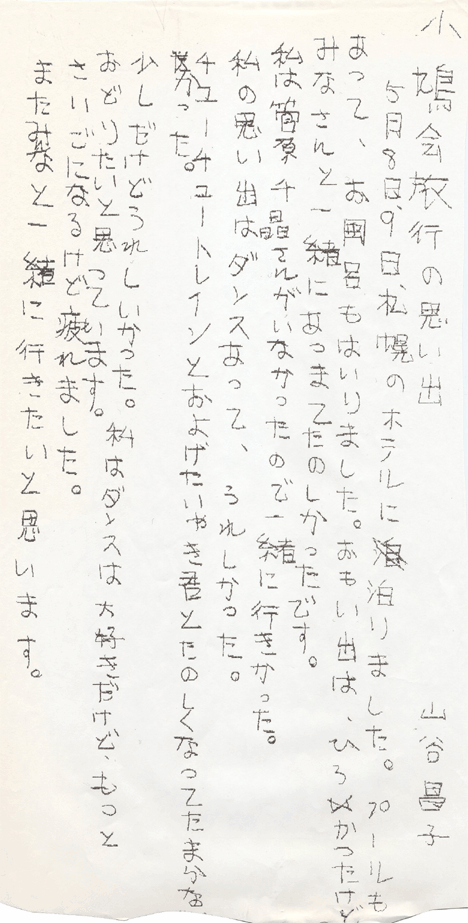 小鳩会旅行の思い出
山谷昌子
5月8日、9日、札幌のホテルに泊りました。プールも
あって、お風呂もはいりました。おもい出は、ひろかったけど
みなさんと一緒にあつまてたのしかったです。
私は菅原千晶さんがいなかったので一緒に行きかった。
私の思い出はダンスあって、うれしかった。
チューチュートレインとおよげたいやき君とたのしくなってたまらな
かった。
少しだけどうれしいかった。私はダンスは大好きだけど、もっと
おどりたいと思っています。
さいごになるけど疲れました。
またみなと一緒に行きたいと思います。